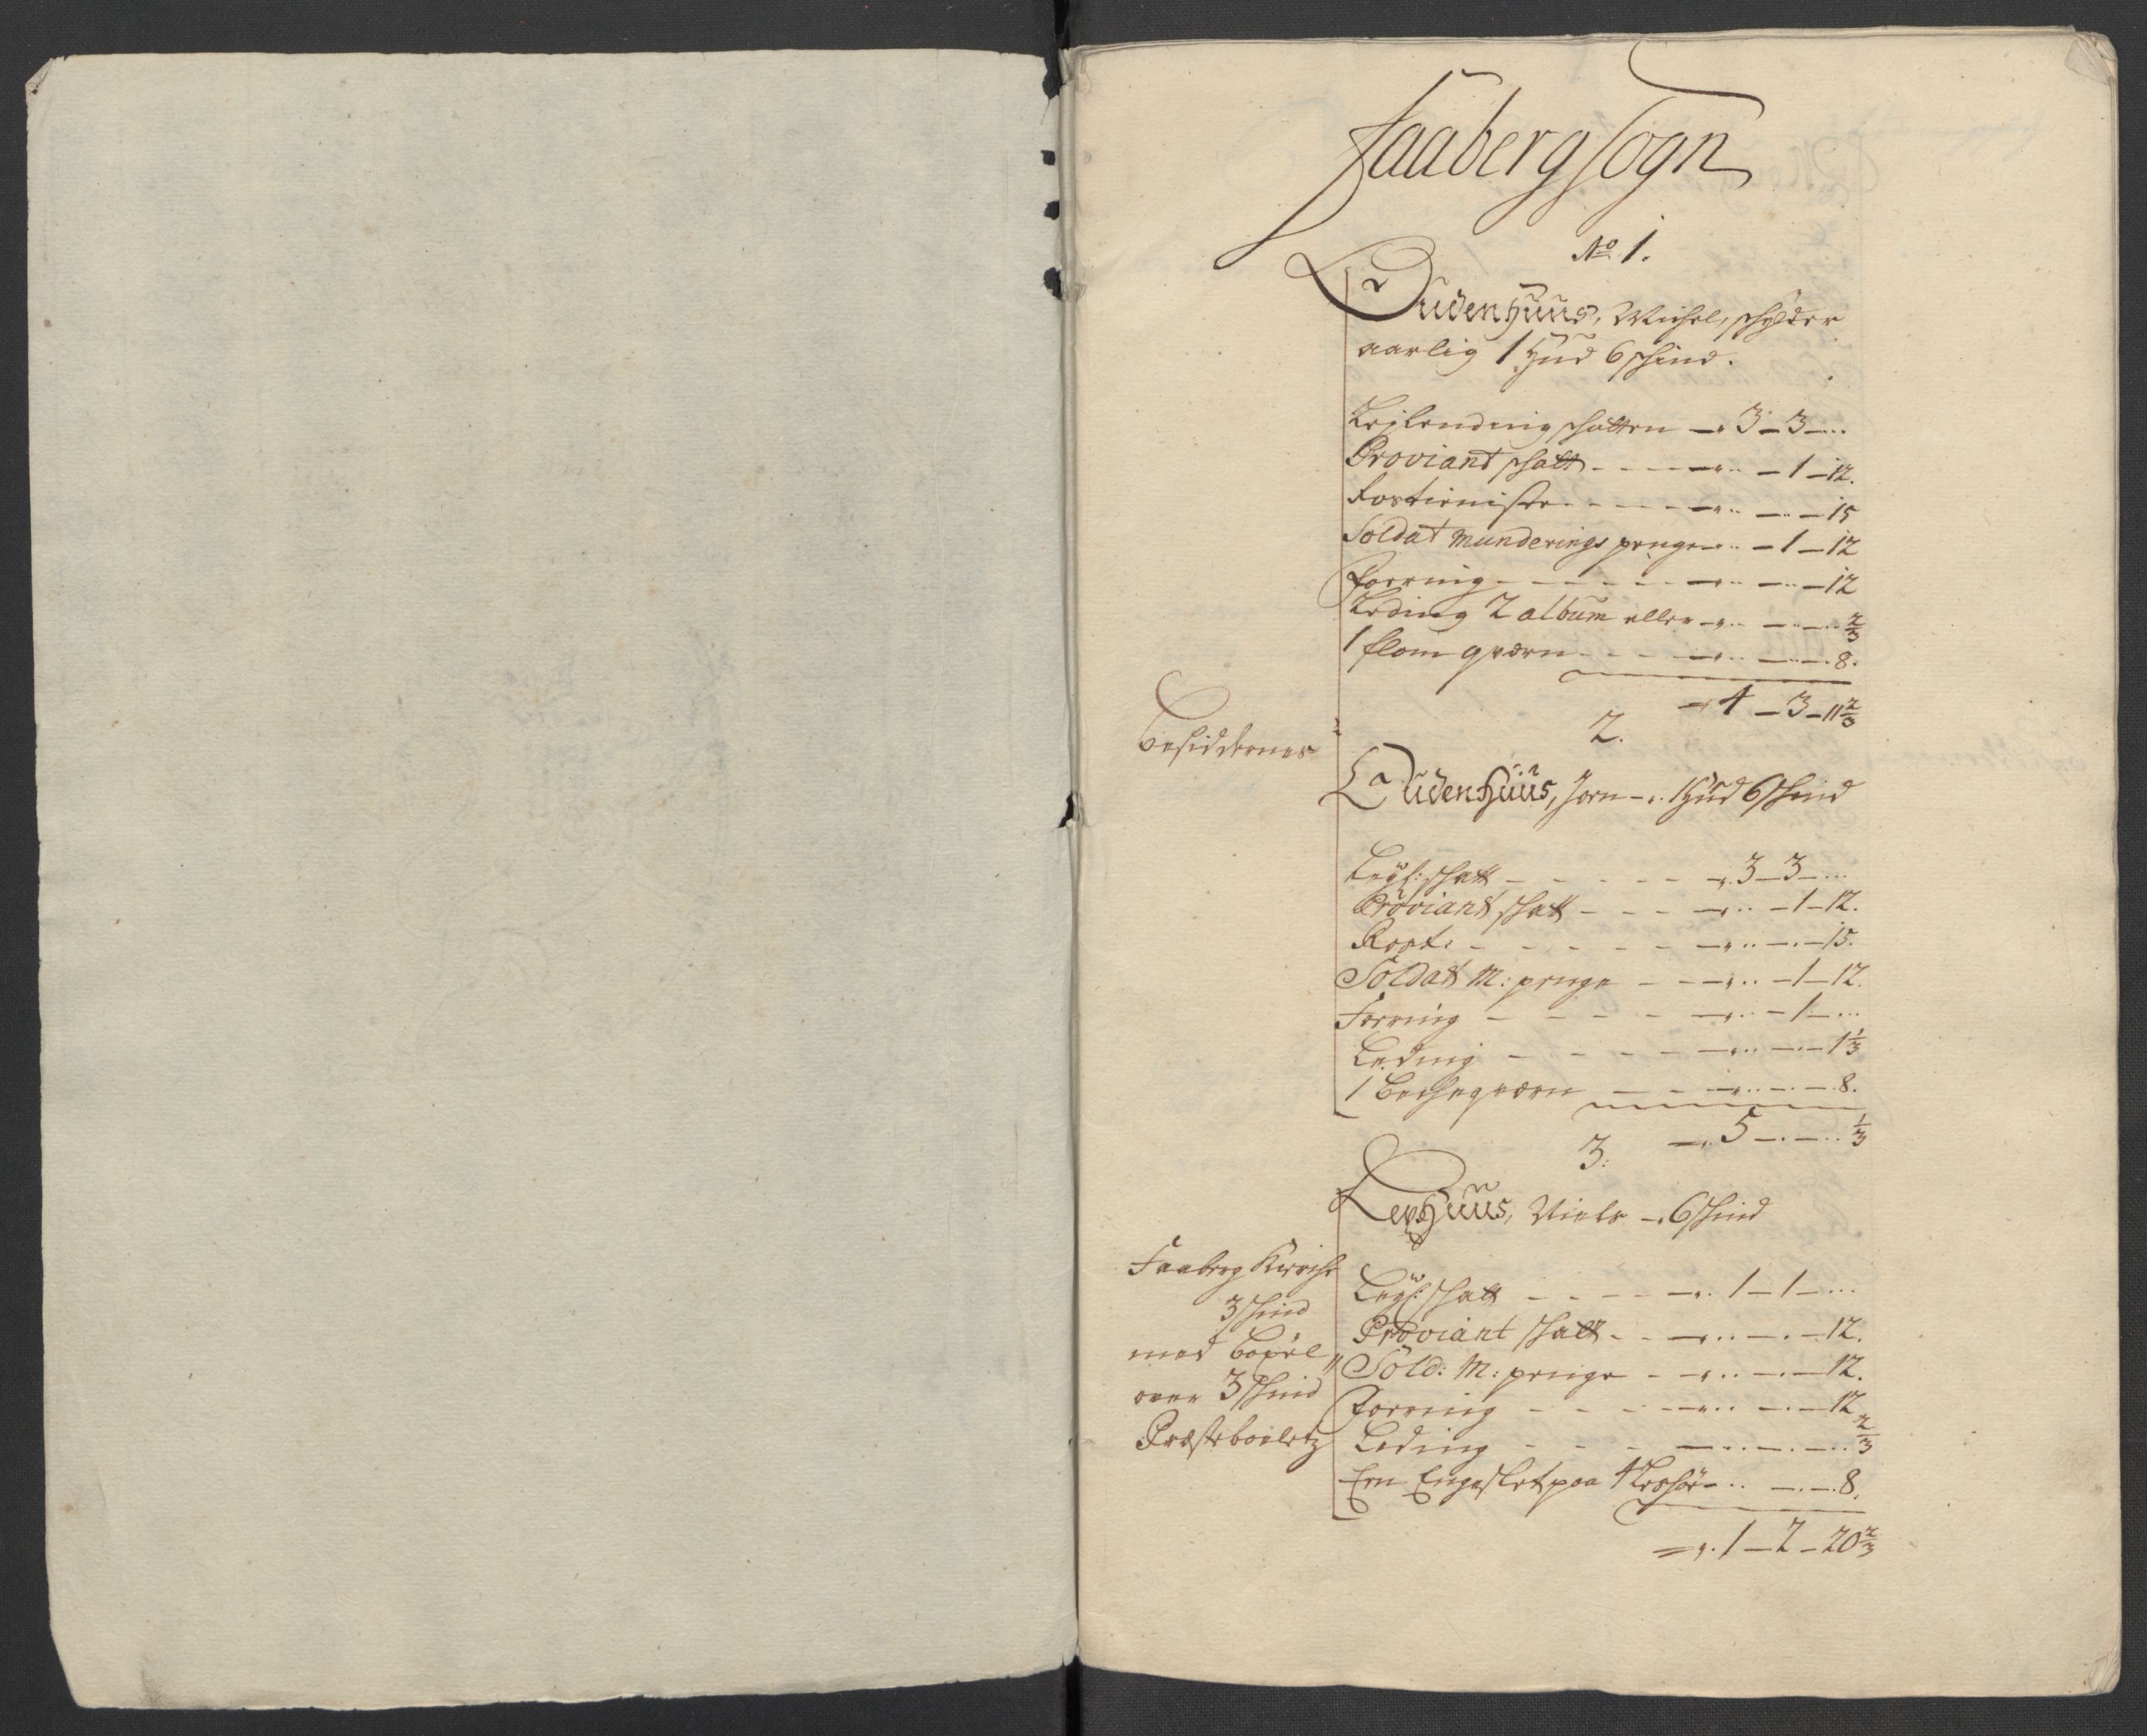 Faaberg Sogn
No 1.
Sudenhuus, Michel, schylder
aarlig 1 Hud 6 schind.
Lejlending schatten — 3 — 3 —
Proviant schatt — 1 — 12.
Rostieniste — 15
Soldat Munderings penge — 1 — 12
Foerring — 12
Leding 2 album eller — 2/3
1 flom qværn — 8.
4 — 3 — 11 2/3
2.
Besiddernes
Sudenhuus, Joen — 1 Hud 6 Schind
Leyl: schatt — 3 — 3 —
Proviant schatt — 1 — 12.
Rost: — 15.
Soldat M: penge — 1 — 12.
Forring — 1 —
Leding — 1 1/3
1 Becheqværn — 8.
5 — 1/3
3:
Niels — 6 Schind
Faaberg Kirche
3 schind
med böxel
over 3 schind
Præsteboeletz
Leyl: schatt — 1 — 1 —
Proviant schatt — 12.
Sold: M: penge — 12.
Forring — 12
Leding — 2/3
Een Engeslet paa 4 — 8.
1 — 2 — 20 2/3